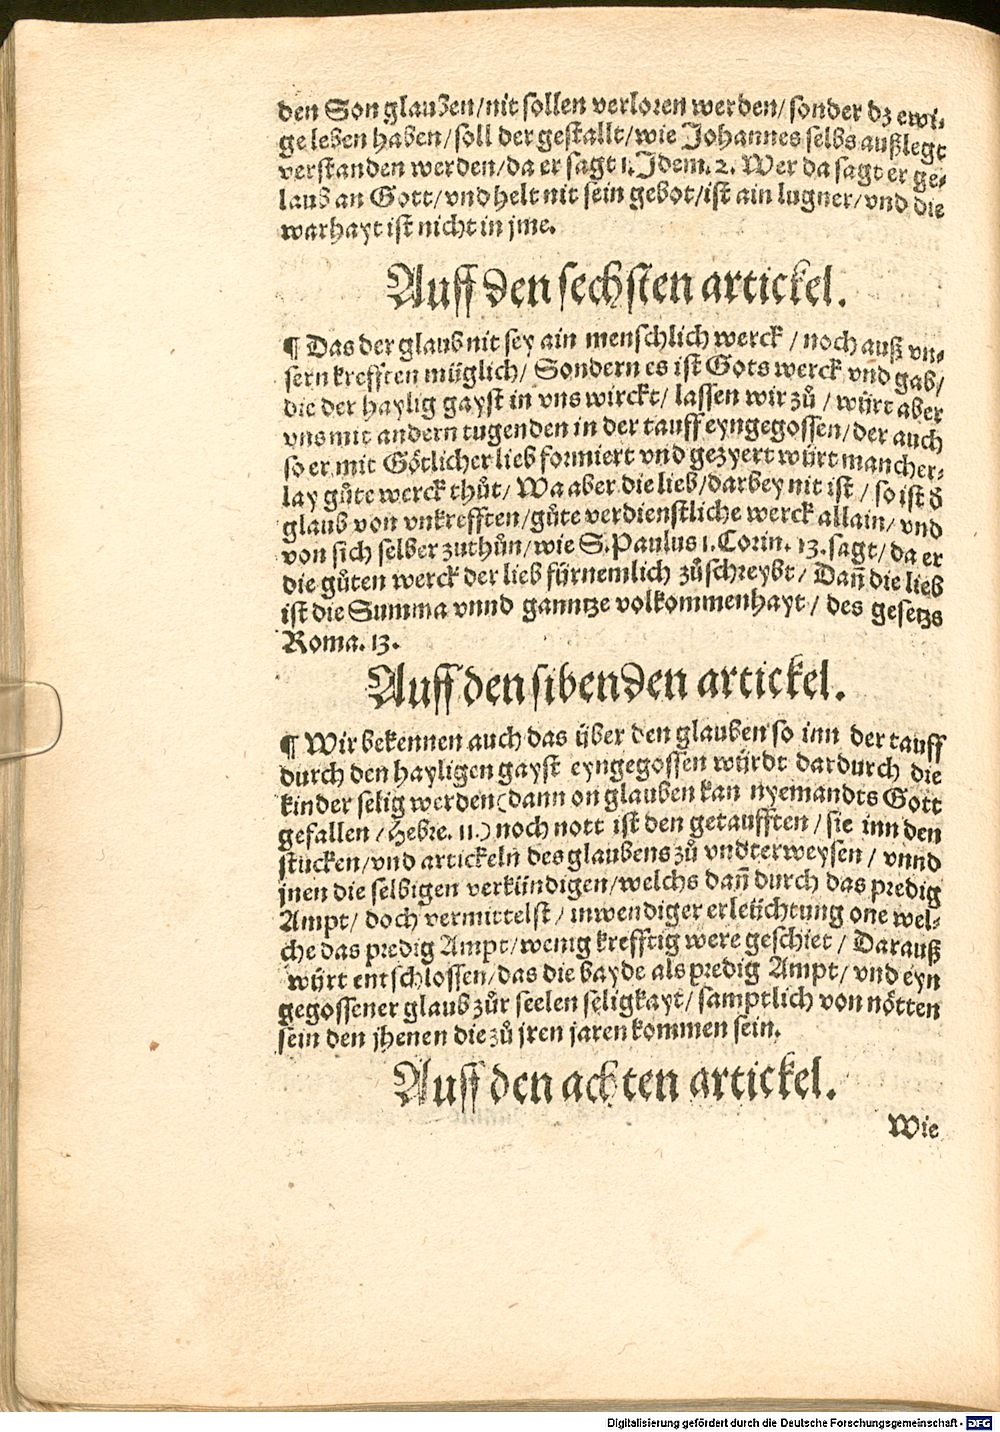 den Son glauben/nit sollen verloren werden/sonder dz ewi-
ge leben haben/soll der gestallt/wie Johannes selbs außlegt
verstanden werden/da er sagt 1. Idem. 2. Wer da sagt er ge-
laub an Gott/vnd helt nit sein gebot/ist ain lugner/vnd die
warhayt ist nicht in jme.
Auff den sechsten artickel.
¶ Das der glaub nit sey ain menschlich werck/noch auß vn-
sern krefften müglich/ Sondern es ist Gots werck vnd gab/
die der haylig gayst in vns wirckt/ lassen wir zů/würt aber
vns mit andern tugenden in der tauff eyngegossen/der auch
so er mit Götlicher lieb formiert vnd gezyert würt mancher-
lay gůte werck thůt/ Wa aber die lieb/darbey nit ist/so ist d̕
glaub von vnkrefften/gůte verdienstliche werck allain/vnd
von sich selber zuthůn/wie S. Paulus 1. Corin. 13. sagt/da er
die gůten werck der lieb fürnemlich zůschreybt/ Dañ die lieb
ist die Summa vnnd ganntze volkommenhayt/ des gesetzs
Roma. 13.
Auff den sibenden artickel.
¶ Wir bekennen auch das über den glauben so inn der tauff
durch den hayligen gayst eyngegossen würdt dardurch die
kinder selig werden (dann on glauben kan nyemandts Gott
gefallen/Hebre. 11.) noch nott ist den getaufften/sie inn den
stucken/vnd artickeln des glaubens zů vndterweysen/ vnnd
jnen die selbigen verkündigen/welchs dañ durch das predig
Ampt/ doch vermittelst/ inwendiger erleüchtung one wel-
che das predig Ampt/wenig krefftig were geschiet/ Darauß
würt entschlossen/das die bayde als predig Ampt/ vnd eyn
gegossener glaub zůr seelen seligkayt/samptlich von nötten
sein den jhenen die zů jren jaren kommen sein.
Auff den achten artickel.
Wie
Digitalisierung gefördert durch die Deutsche Forschungsgemeinschaft - DFG